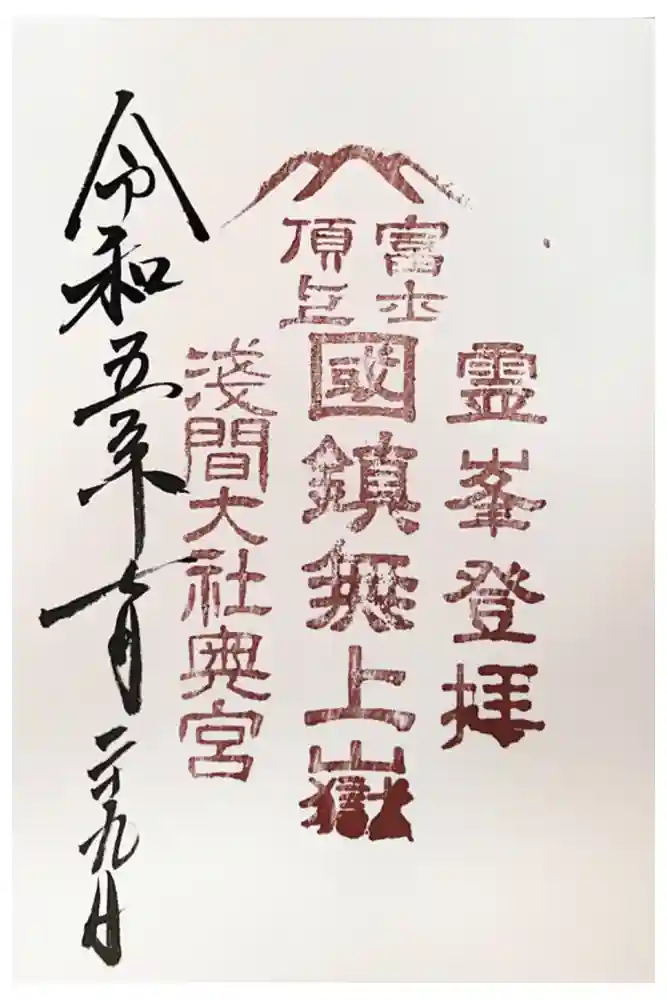 霊峯登拝
富士
頂上
國鎮無上嶽
淺間大社奥宮
令和五年七月二十九日